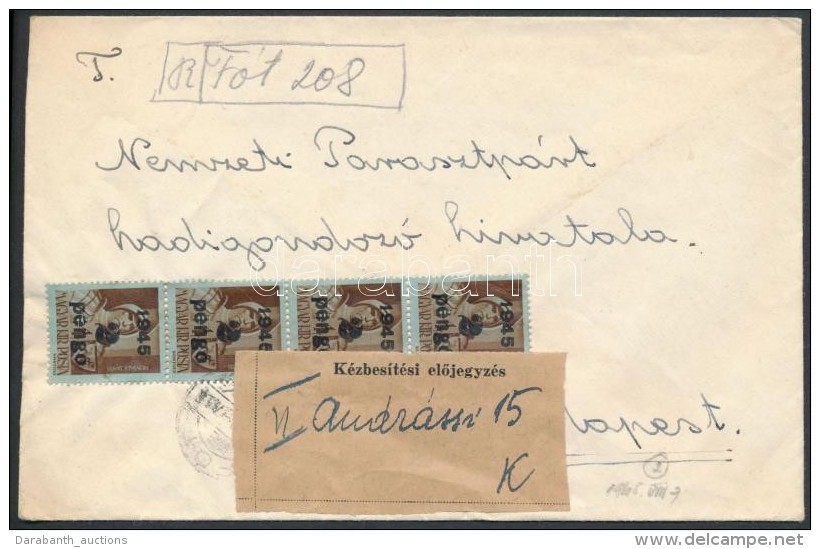 T. R Fót 208
Nemzeti Parasztpárt
hadigondozó hivatala.
darabanth
1945 pengő 1945 pengő 1945 pengő 1945 pengő
MAGYAR KIR. POSTA MAGYAR KIR. POSTA MAGYAR KIR. POSTA MAGYAR KIR. POSTA
Kézbesítési előjegyzés
VI Andrássi 15
K
dapest.
2
Darabanth_auctions
www.delcampe.net